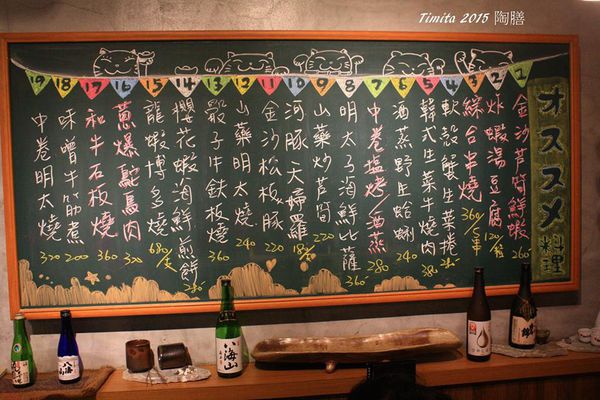 Timita 2015 陶膳
オススメ料理
1 金沙芦筍鮮蝦 260
2 水蝦湯豆腐 120/鍋
3 綜合串燒 360/串
4 軟殼蟹生菜捲
5 韓式生菜牛燒肉
6 酒蒸野生蛤蜊 240
7 中卷塩烤/酒蒸 280
8 明太子海鮮比薩 360
9 山藥炒芦筍 220
10 河豚大婦羅
11 金沙松板豚 220
12 山藥明太燒 240
13 骰子牛鉄板燒
14 櫻花蝦海鮮煎餅
15 龍蝦博多燒 680/支
16 蔥爆鴕鳥肉
17 和牛石板燒 320
18 味噌牛筋煮 200
19 中卷明太燒 320
八海山